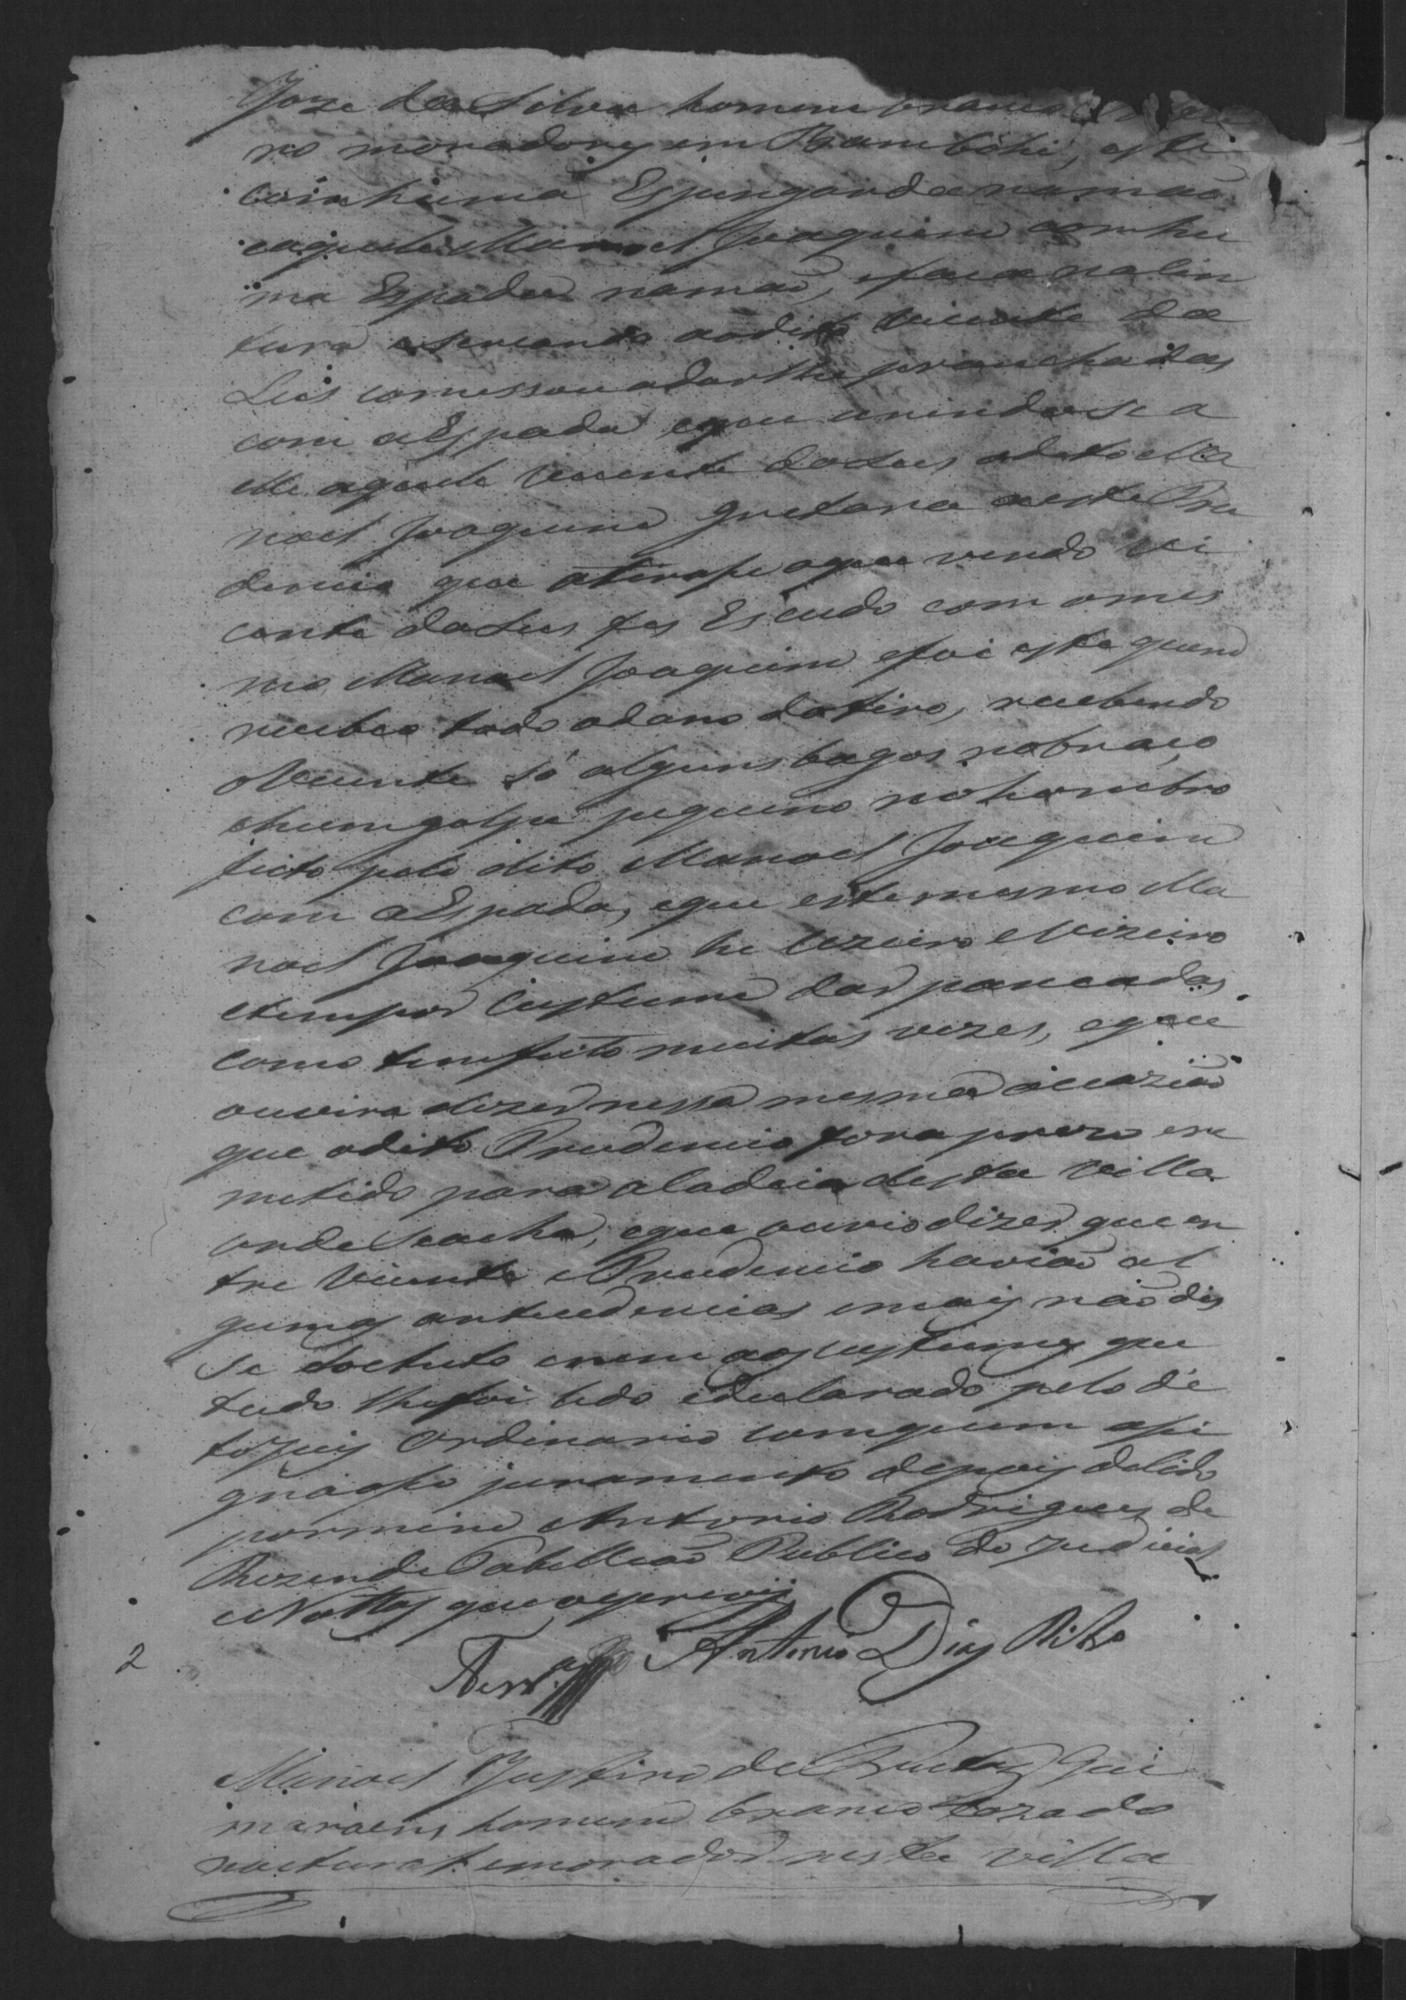 Joze da Silva homem branco
ro moradores em Bambohi, este
com huma Espingarda na mao
e aquele Manoel Joaquim com hu
ma Espada na mao, e faca na Cin
tura e sercando ao dito Vicente da
Luis comessou a dar lhe pranchadas
com a Espada e que unindo se a
elle aquele Vicente da Luis o dito Ma
noel Joaquim gritara a este Pru
dencio que atirase o que vendo Vi
cente da Luis fes Escudo com o mes
mo Manoel Joaquim e foi este quem
recebeo todo o dano do tiro, recebendo
o Vicente só alguns bagos no braço,
e hum golpe pequeno no hombro
feito pelo dito Manoel Joaquim
com a Espada, e que este mesmo Ma
noel Joaquim he Uzeiro e Vizeiro
e tem por Custume dar pancadas
como tem feito muitas vezes, e que
ouvira dizer nessa mesma ocazião
que o dito Prudencio fora prezo e re
metido para a Cadeia desta Villa
onde Se acha, e que ouvio dizer que en
tre Vicente e Prudencio havião al
gumas antecedencias e mais não dis
se do cluto e nem aos custumes que
tudo lhe foi lido e declarado pelo di
to Juis Ordinario com quem asi
gna o seo juramento depois de lido
por mim Antonio Rodrigues de
Rezende Tabelliao Publico do Judicial
e Nottas que o escrevi
Antonio Dias Rib.o
2
Manoel Justino de Gui
maraens homem branco Cazado
natural e morador nesta Villa